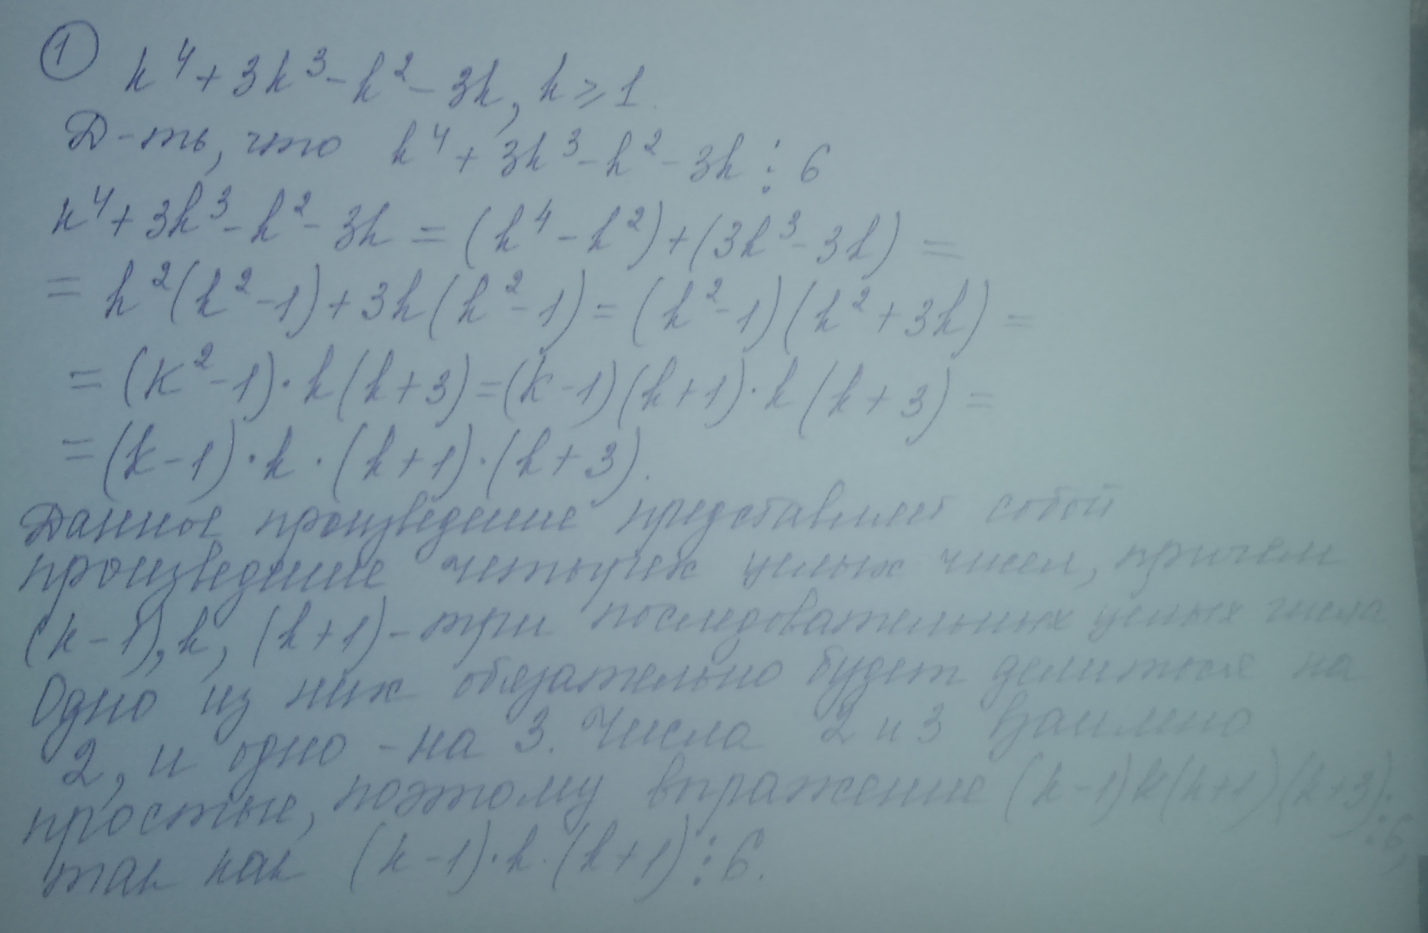 ① k⁴+3k³-k²-3k, k≥1.
Д-ть, что k⁴+3k³-k²-3k ⋮ 6
k⁴+3k³-k²-3k = (k⁴-k²)+(3k³-3k) =
= k²(k²-1)+3k(k²-1) = (k²-1)(k²+3k) =
= (k²-1)·k(k+3) = (k-1)(k+1)·k(k+3) =
= (k-1)·k·(k+1)·(k+3).
Данное произведение представляет собой
произведение четырех целых чисел, причем
(k-1), k, (k+1) - три последовательных целых числа
Одно из них обязательно будет делиться на
2, и одно - на 3. Числа 2 и 3 взаимно
простые, поэтому выражение (k-1)k(k+1)(k+3)⋮6,
так как (k-1)·k·(k+1)⋮6.